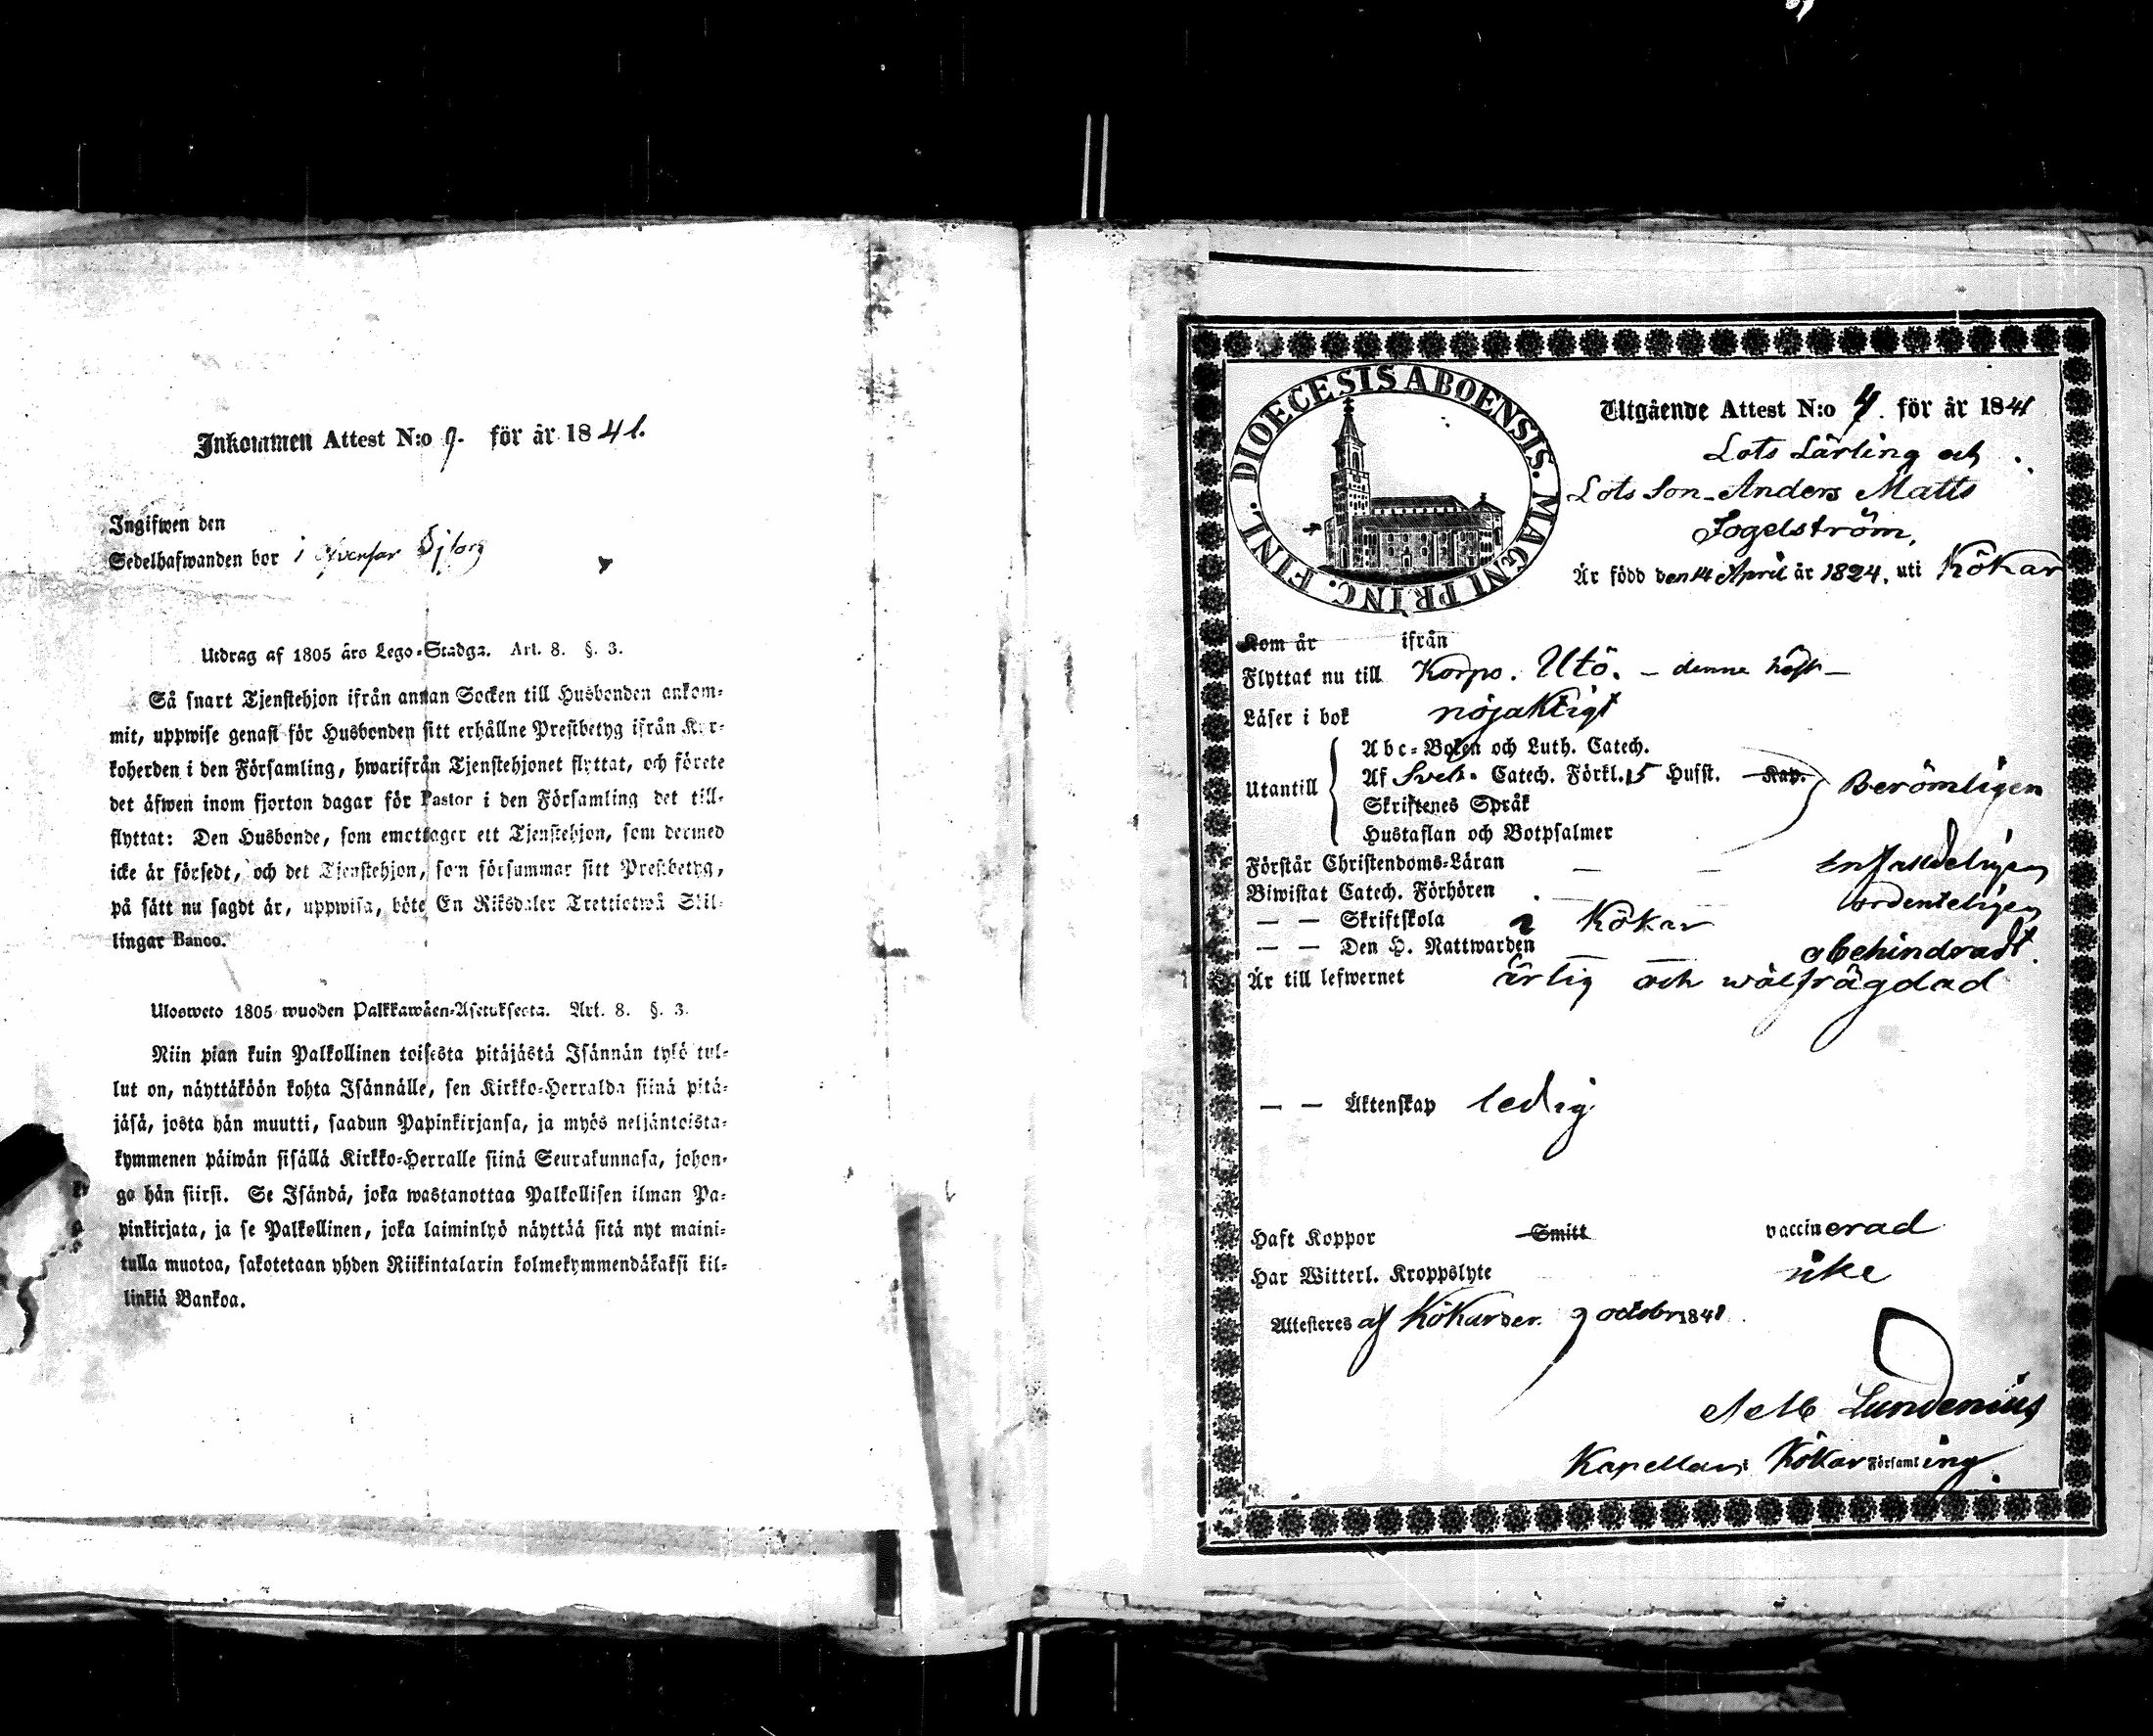 Inkommen Attest N:o 9. för år 1841.
Ingifwen den
Sedelhafwanden bor i
Utdrag af 1805 års Lego-Stadga. Art. 8. §. 3.
Så snart Tjenstehjon ifrån annan Socken till Husbonden ankom-
mit, uppwise genast för Husbonden sitt erhållne Prestbetyg ifrån Kyr-
koherden i den Församling, hwarifrån Tjenstehjonet flyttat, och förete
det äfwen inom fjorton dagar för Pastor i den Församling det till-
flyttat: Den Husbonde, som emottager ett Tjenstehjon, som dermed
icke är försedt, och det Tjenstehjon, som försummar sitt Prestbetyg,
på sätt nu sagdt är, uppwisa, böte En Riksdaler Trettiotwå Skil-
lingar Banco.
Ulosweto 1805 wuoden Palkkawäen-Asetuksesta. Art. 8. §. 3.
Niin pian kuin Palkollinen toisesta pitäjästä Isännän tykö tul-
lut on, näyttäköön kohta Isännälle, sen Kirkko-Herralda siinä pitä-
jäsä, josta hän muutti, saadun Papinkirjansa, ja myös neljäntoista-
kymmenen päiwän sisällä Kirkko-Herralle siinä Seurakunnasa, johon-
ga hän siirsi. Se Isändä, joka wastanottaa Palkollisen ilman Pa-
pinkirjata, ja se Palkollinen, joka laiminlyö näyttää sitä nyt maini-
tulla muotoa, sakotetaan yhden Riikintalarin kolmekymmendäkaksi kil-
linkiä Bankoa.
DIOECESIS ABOENSIS. MAGNI PRINC. FINL.
Utgående Attest N:o 4. för år 1841
Lots Lärling och
Lots Son Anders Matts
Fogelström,
Är född den 14 April år 1824. uti Kökar
Kom år ifrån
Flyttat nu till Korpo. Utö. – denne höst –
Läser i bok nöjaktigt
Utantill
Abc-Boken och Luth. Catech.
Af Sveb. Catech. Förkl. 15 Husst. Kap. Berömligen
Skriftenes Språk
Hustaflan och Botpsalmer
Förstår Christendoms-Läran – – enfalldeligen
Biwistat Catech. Förhören ordenteligen
– – Skriftskola i Kökar
– – Den H. Nattwarden – – obehindradt.
Är till lefwernet ärlig och wälfrägdad
– – Äktenskap ledig
Haft Koppor Smitt vaccinerad
Har Witterl. Kroppslyte icke
Attesteres af Kökar den 9 octobr 1841
Lundenius
Kapellan i Kökar Församling.